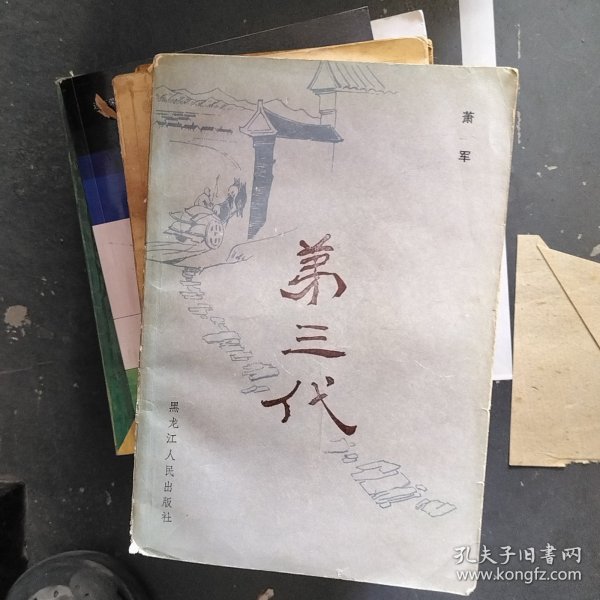 萧军
第三代
黑龙江人民出版社
孔夫子旧书网
www.kongfz.com